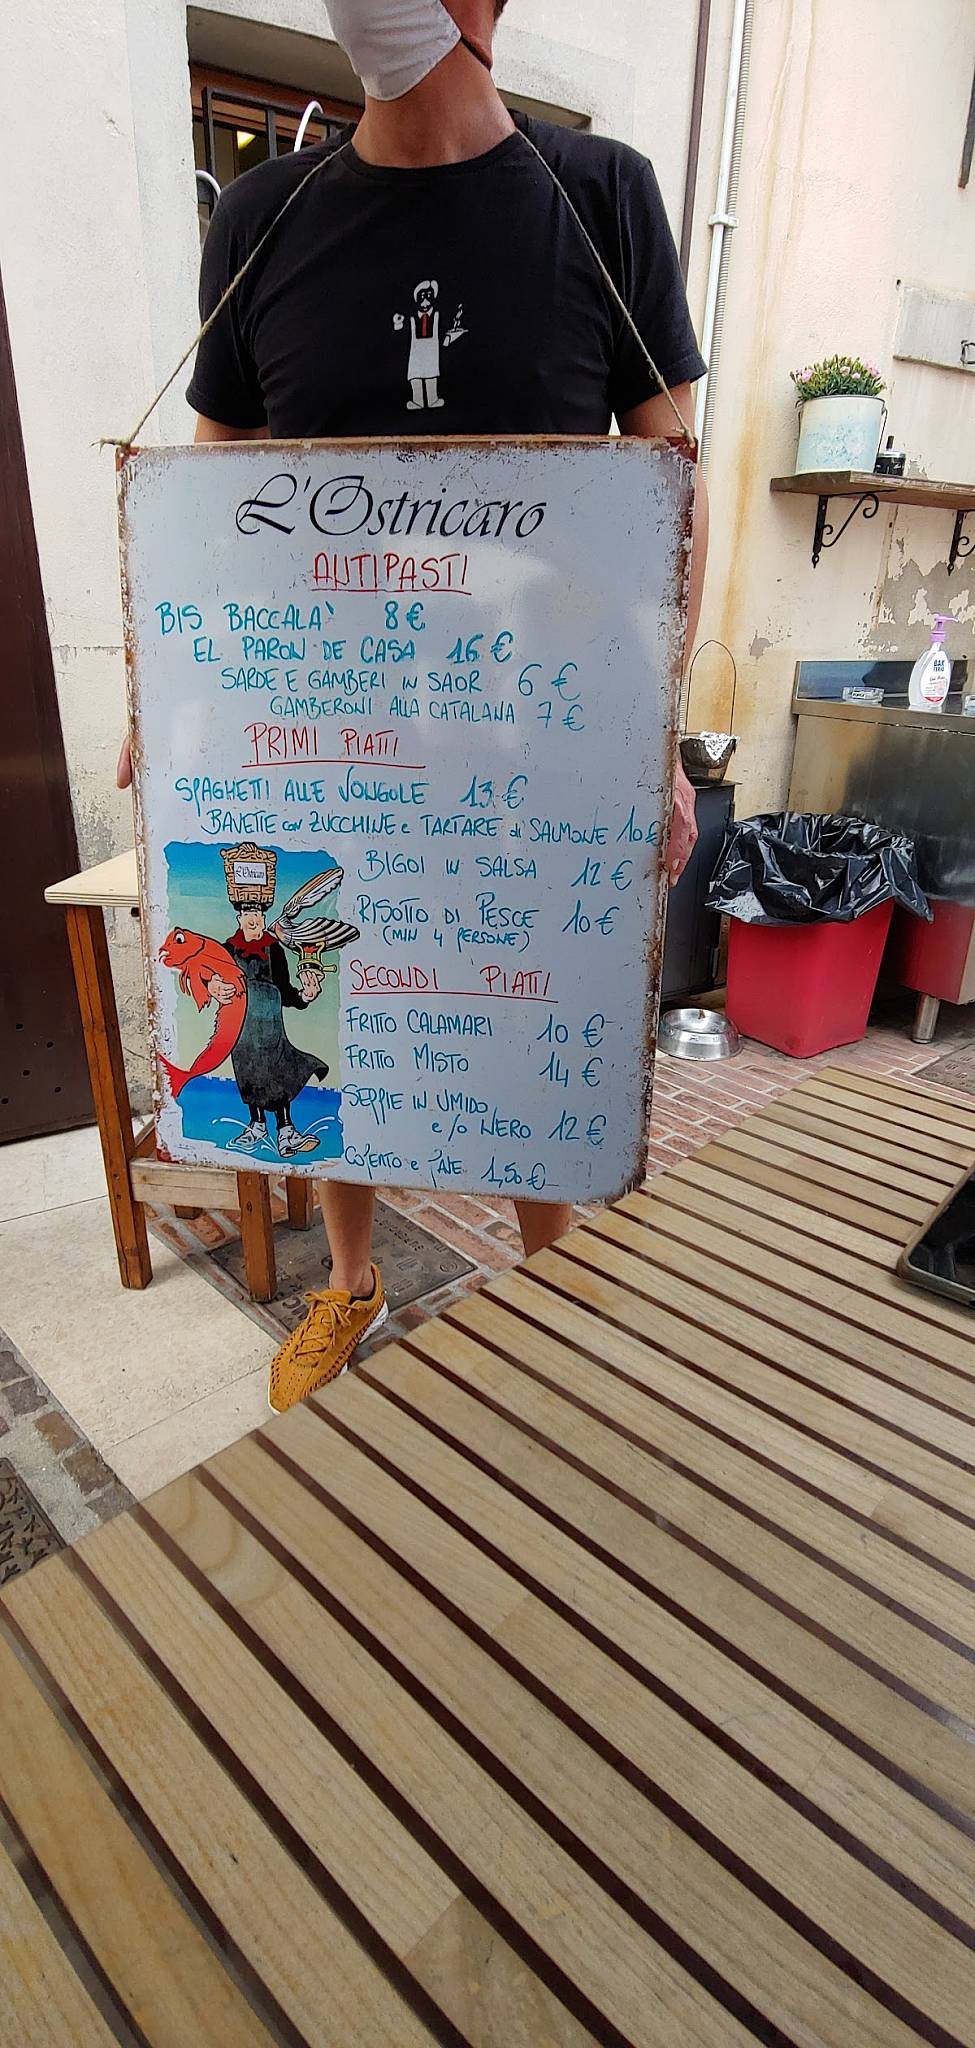 L'Ostricaro
ANTIPASTI
BIS BACCALA' 8 €
EL PARON DE CASA 16 €
SARDE E GAMBERI IN SAOR 6 €
GAMBERONI ALLA CATALANA 7 €
PRIMI PIATTI
SPAGHETTI ALLE VONGOLE 13 €
BAVETTE con ZUCCHINE e TARTARE di SALMONE 10 €
BIGOI IN SALSA 12 €
RISOTTO DI PESCE 10 €
(MIN 4 PERSONE)
L'Ostricaro
SECONDI PIATTI
FRITTO CALAMARI 10 €
FRITTO MISTO 14 €
SEPPIE IN UMIDO
e/o NERO 12 €
CO'ERTO e PANE 1,50 €